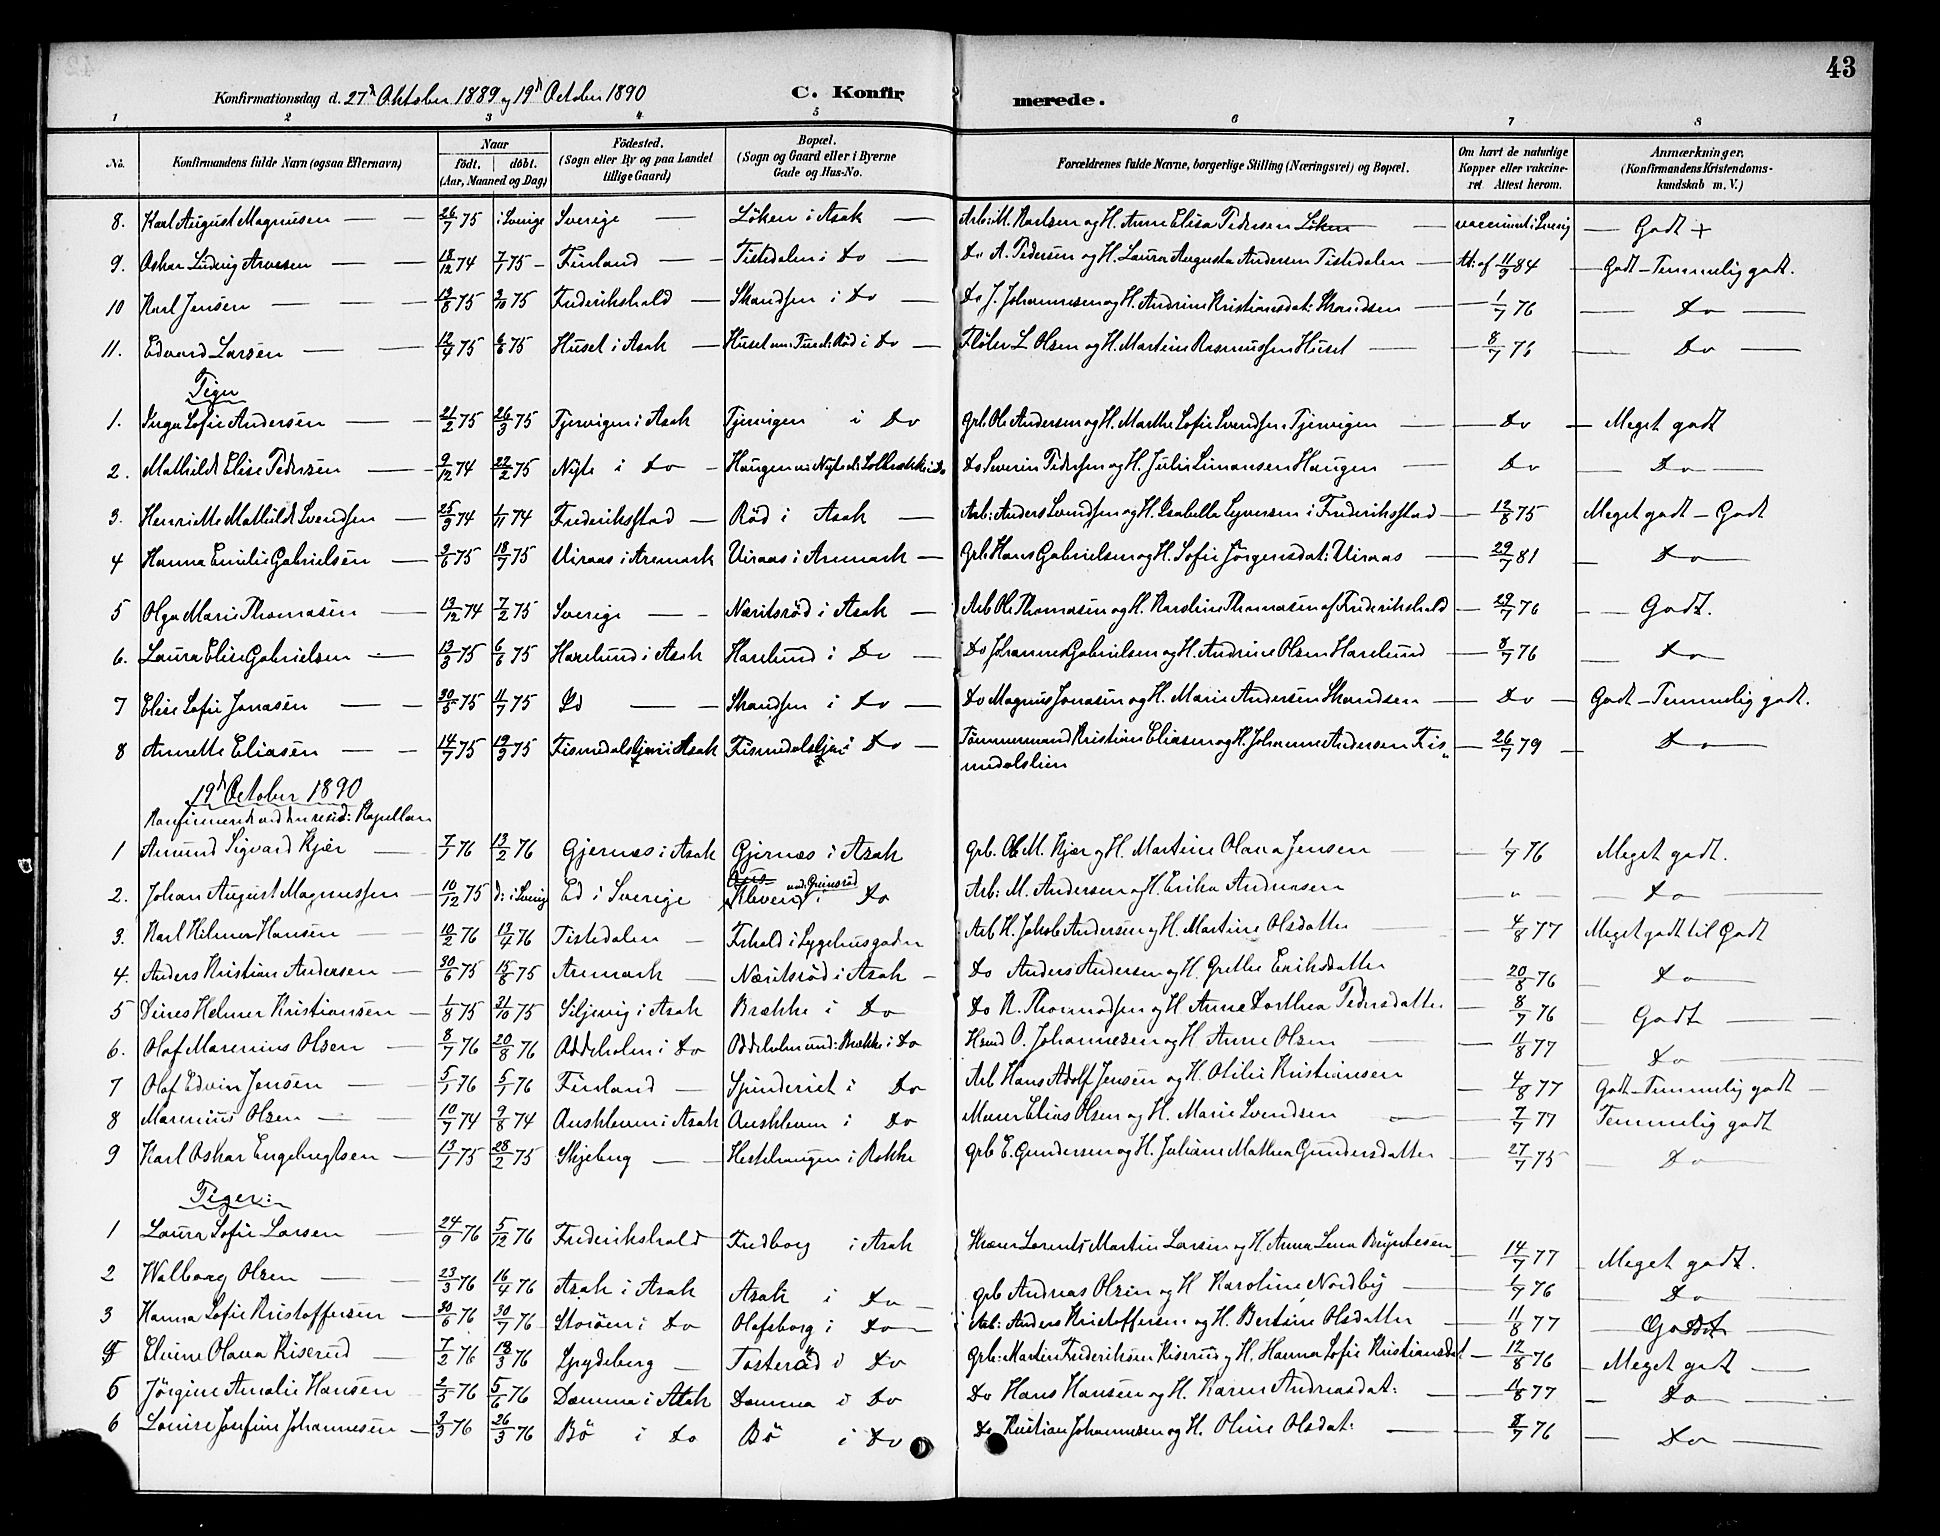 43
Konfirmationsdag d. 27de Oktober 1889 og 19de October 1890 C. Konfirmerede.
1 2 3 4 5 6 7 8
No. Konfirmandens fulde Navn (ogsaa Efternavn) Naar født. døbt. (Aar, Maaned og Dag) Födested. (Sogn eller By og paa Landet tillige Gaard) Bopæl. (Sogn og Gaard eller i Byerne Gade og Hus-No. Forældrenes fulde Navne, borgerlige Stilling (Næringsvei) og Bopæl. Om havt de naturlige Kopper eller vaccineret Attest herom. Anmærkninger, (Konfirmandens Kristendomskundskab m. V.)
8. Karl August Magnusen 26/7 75 i Sverige Sverige Löken i Asak Arb: M. Karlsen og H. Anne Elisa Pedersen Löken vaccineret i Sverig Godt +
9. Oskar Ludvig Arvesen 18/12 74 7/1 75 Finland Tistedalen i Do Do A. Pedersen og H. Laura Augusta Andersen Tistedalen At: af 11/9 84 Godt - Temmelig godt.
10 Karl Jensen 13/8 75 3/10 75 Frederikshald Skandsen i Do Do J. Johannesen og H. Andrine Kristiansdat: Skandsen 1/7 76 Do
11. Edvard Larsen 12/4 75 6/6 75 Huset i Asak Huset und: Röd i Do Fløter L Olsen og H. Martine Rasmussen Huset 8/7 76 Do
Piger
1. Inga Sofie Andersen 21/2 75 26/3 75 Tjernigen i Asak Tjernigen i Do Grb. Ole Andersen og H. Marthe Sofie Svendsen Tjernigen Do Meget godt
2. Mathilde Elise Pedersen 9/12 74 22/2 75 Nyte i Do Haugen Do Severin Pedersen og H. Julie Simonsen Haugen Do Do
3. Henriette Mathilde Svendsen 25/9 74 1/11 74 Frederiksstad Röd i Asak Arb: Anders Svendsen og H. Isabella Syversen i Frederiksstad 12/8 75 Meget godt - Godt
4 Hanna Emilie Gabrielsen 9/6 75 18/7 75 Viraas i Aremark Viraas i Aremark Grb. Hans Gabrielsen og H. Sofie Jörgensdat: Viraas 29/7 81 Do
5 Olga Marie Thomasen 13/12 74 7/2 75 Sverige Næritsröd i Asak Arb Ole Thomasen og H. Karoline Thomasen af Frederikshald 29/7 76 Godt.
6. Laura Elise Gabrielsen 13/3 75 6/6 75 Harelund i Asak Harelund i Do Do Johannes Gabrielsen og H. Andrine Olsen Harelund 8/7 76 Do
7 Elise Sofie Jonasen 30/5 75 11/7 75 Id Skandsen i Do Do Magnus Jonasen og H. Marie Andersen Skandsen Do Godt - Temmelig godt.
8 Annette Eliasen 14/7 75 19/9 75 Fismedalslien i Asak Fismedalslien i Do Tömmermand Kristian Eliasen og H. Johanne Andersen Fis-
medalslien 26/7 79 Do
19de October 1890
Konfirmerede ved den resid: Kapellan
1 Amund Sigvard Kjær 7/1 76 13/2 76 Gjernæs i Asak Gjernæs i Asak Grb. Ole M. Kjær og H. Martine Olava Jensen 1/7 76 Meget godt.
2. Johan August Magnussen 10/12 75 d: i Sverig Ed i Sverige Kleven und. Grimsröd i Do Arb: M. Andersen og H. Erika Andreasen " Do
3. Karl Hilmer Hansen 10/2 76 13/4 76 Tistedalen Frhald i Sygehusgaden Arb H. Jakob Andersen og H. Martine Olsdatter 4/8 77 Meget godt til Godt
4. Anders Kristian Andersen 30/6 75 15/8 75 Aremark Næritsröd i Asak Do Anders Andersen og H. Grethe Eriksdatter 20/8 76 Do
5 Dines Helmer Kristiansen 1/8 75 31/10 75 Siljevig i Asak Brække i Do Do K. Thomassen og H Anne Dorthea Pedersdatter 8/7 76 Godt
6. Olaf Marenius Olsen 8/7 76 20/8 76 Addeholm i Do Oddeholm und: Brække i Do Hmd O. Johannesen og H Anne Olsen 11/8 77 Do
7 Olaf Edvin Jensen 5/1 76 5/1 76 Finland Spinderiet i Do Arb Hans Adolf Jensen og H. Otilie Kristiansen 4/8 77 Godt - Temmelig godt
8 Marenius Olsen 10/7 74 9/8 74 Auskleven i Asak Auskleven i Do Murer Elias Olsen og H. Marie Svendsen 7/7 77 Temmelig godt
9 Karl Oskar Engebregtsen 13/1 75 28/2 75 Skjeberg Hestehaugen i Rokke Grb E. Gundersen og H. Juliane Mathea Gundersdatter 27/7 75 Do
Piger:
1 Laura Sofie Larsen 24/9 76 5/12 76 Frederikshald Fredborg i Asak Skræd. Lorents Martin Larsen og H. Anna Lena Bryntesen 14/7 77 Meget godt.
2 Walborg Olsen 23/3 76 16/4 76 Asak i Asak Asak i Do Grb Andreas Olsen og H Karoline Nordby 1/7 76 Do
3 Hanna Sofie Kristoffersen 30/6 76 30/7 76 Storöen i Do Olafsborg i Do Arb: Anders Kristoffersen og H. Bertine Olsdatter 11/8 77 Godt
4 Elvine Olava Kiserud 7/2 76 13/3 76 Spydeberg Tosteröd i Do Grb: Martin Frederiksen Kiserud og H. Hanna Sofie Kristiansdat 12/8 76 Meget godt
5 Jörgine Amalie Hansen 2/5 76 5/6 76 Damma i Asak Damma i Do Do Hans Hansen og H. Karen Andreasdat: 11/8 77 Do
6 Lovise Josefine Johannesen 3/3 76 26/3 76 Bö i Do Bö i Do Do Kristian Johannesen og H. Oline Olsdat: 8/7 76 Do